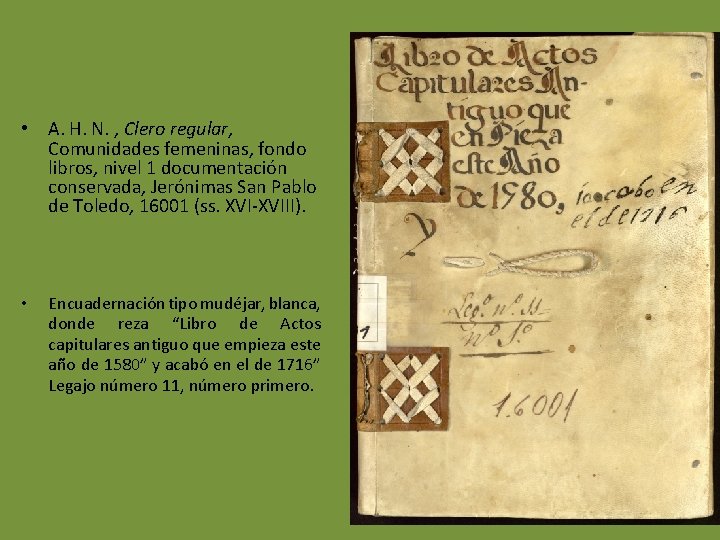 • A. H. N. , Clero regular,
Comunidades femeninas, fondo
libros, nivel 1 documentación
conservada, Jerónimas San Pablo
de Toledo, 16001 (ss. XVI-XVIII).
• Encuadernación tipo mudéjar, blanca,
donde reza “Libro de Actos
capitulares antiguo que empieza este
año de 1580” y acabó en el de 1716”
Legajo número 11, número primero.
Libro de Actos
Capitulares An-
tiguo que
en Pieza
este Año
de 1580,
y
acabo en
el de 1716
Leg.º nº. 11
nº 1.º
1
1.6001